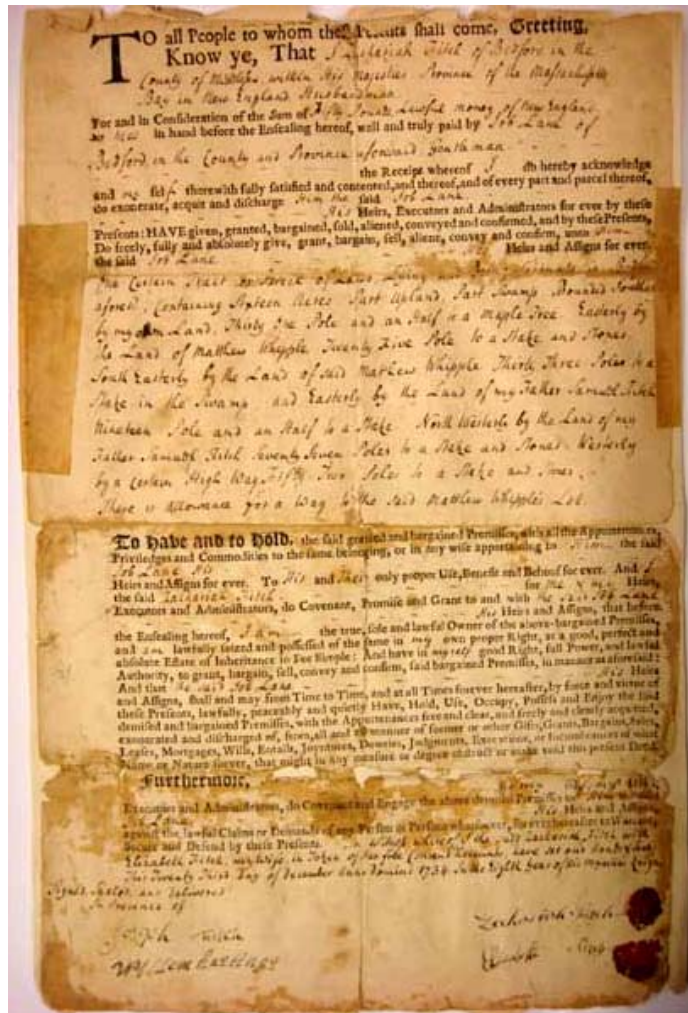 TO all People to whom these Presents shall come, Greeting,
Know ye, That I Zachariah Fitch of Bedford in the
County of Middlsx within His Majesties Province of the Massachusetts
Bay in New England Husbandman
For and in Consideration of the Sum of Fifty Pounds Lawful money of New England
to me in hand before the Ensealing hereof, well and truly paid by Job Lane of
Bedford in the County and Province aforesaid Yeothman
the Receipt whereof I do hereby acknowledge
and my self therewith fully satisfied and contented, and thereof, and of every part and parcel thereof,
do exonerate, acquit and discharge Him the said Job Lane
His Heirs, Executors and Administrators for ever by these
Presents: HAVE given, granted, bargained, sold, aliened, conveyed and confirmed, and by these Presents,
Do freely, fully and absolutely give, grant, bargain, sell, aliene, convey and confirm, unto Him
the said Job Lane His Heirs and Assigns for ever.
One Certain Tract or Parcel of Land Lying and
aforesd. Containing Sixteen Acres Part Upland, Part Swamp Bounded
by my own Land, Thirty One Pole and an Half to a Maple Tree Easterly by
the Land of Matthew Whipple Twenty Five Pole to a Stake and Stones
South Easterly by the Land of said Mathew Whipple Thirty Three Poles to a
Stake in the Swamp and Easterly by the Land of my Father Samuel Fitch
Nineteen Pole and an Half to a Stake North Westerly by the Land of my
Father Samuel Fitch Seventy Seven Poles to a Stake and Stones Westerly
by a Certain High Way Fifty Two Poles to a Stake and Stones
There is allowance for a Way to the said Matthew Whipple's Lot.
To have and to Hold, the said granted and bargained Premisses, with all the Appurtenances,
Priviledges and Commodities to the same belonging, or in any wise appertaining to Him the said
Job Lane His
Heirs and Assigns for ever. To His and Their only proper Use, Benefit and Behoof for ever. And I
the said Zachariah Fitch for me & my Heirs,
Executors and Administrators, do Covenant, Promise and Grant to and with the said Job Lane
His Heirs and Assigns, that before
the Ensealing hereof, I am the true, sole and lawful Owner of the above-bargained Premisses,
and am lawfully seized and possessed of the same in my own proper Right, as a good, perfect and
absolute Estate of Inheritance in Fee Simple: And have in my self good Right, full Power, and lawful
Authority, to grant, bargain, sell, convey and confirm, said bargained Premisses, in manner as aforesaid:
And that the said Job Lane His Heirs
and Assigns, shall and may from Time to Time, and at all Times forever hereafter, by force and virtue of
these Presents, lawfully, peaceably and quietly Have, Hold, Use, Occupy, Possess and Enjoy the said
demised and bargained Premisses, with the Appurtenances free and clear, and freely and clearly acquitted,
exonerated and discharged of, from, all and all manner of former or other Gifts, Grants, Bargains, Sales,
Leases, Mortgages, Wills, Entails, Joyntures, Dowries, Judgments, Executions, or Incumbrances of what
Name or Nature soever, that might in any measure or degree obstruct or make void this present Deed.
Furthermore,
Executors and Administrators, do Covenant and Engage the above demised Premisses to Him the said
Job Lane His Heirs and Assigns,
against the lawful Claims or Demands of any Person or Persons whatsoever, for ever hereafter to Warrant,
Secure and Defend by these Presents. In witness whereof I the said Zachariah Fitch with
Elizabeth Fitch my wife in Token of her free Consent have set our hands
This Twenty Third Day of December Anno Domini 1734 In the Eighth Year of His Majesties Reign
Signed, Sealed, and delivered
In Presence of
Zechariah Fitch
Fitch